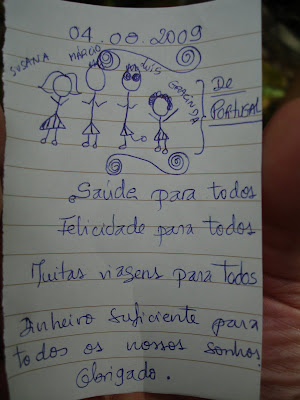 04.08.2009
SUSANA MÁRCIO LUÍS GRACINDA
DE
PORTUGAL
Saúde para todos
Felicidade para todos
Muitas viagens para todos
Dinheiro suficiente para
todos os nossos sonhos.
Obrigado.